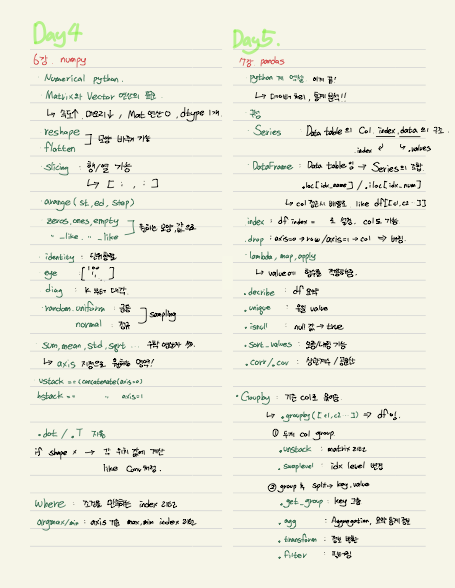 Day4
6강. numpy
· Numerical python.
Matrix와 Vector 연산의 표준
↳ 속도↑, 메모리↓, Mat 연산 O, dtype 1개
reshape
flatten ] 모양 바꾸기 기능
· slicing : 행/열 가능
↳ [ : , : ]
arange (st, ed, step)
zeros, ones, empty
" _like. " _like ] 원하는 모양, 값으로
· identity : 단위행렬
eye
diag : k 부터 대각
· random. uniform : 균등
normal : 정규 ] sampling
sum, mean, std, sqrt ...
↳ axis 지정으로
vstack == (concatenate(axis=0)
hstack == " axis=1
· .dot / .T 지원
if shape x → 각 위치 값이 계산
like
where : 조건을 만족하는 index 리턴
argmax/min : axis 기준 max, min index 리턴
Day5.
7강 pandas
· python 계 엑셀
↳ 데이터 처리, 통계 분석!!
구성
· Series : Data table 의 Col. index, data 의 구조.
.index .values
· DataFrame : Data table 임 → Series의 조합.
.loc[idx_name] / .iloc[idx_num]
↳ like df[[c1, c2 ··]]
index : df index = 로 설정. col도 가능
.drop : axis=0 → row / axis=1 → col ⇒
· lambda, map, apply
↳ value에 함수를 적용하기.
. decribe : df 요약
. unique : 유일 value
. isnull : null 값 → true
. sort_values : 오름/내림 가능
. corr / .cov : 상관계수 / 공분산
· Groupby : 기준 col로
↳ .groupby([c1, c2 ··]) ⇒ df임.
① 두개 col group
. unstack : matrix 리턴
. swaplevel : idx level 변경
② group 후, split → key, value
. get_group : key 그룹
. agg : Aggregation, 요약 통계 정보
. transform : 정보 변환
. filter : 필터링